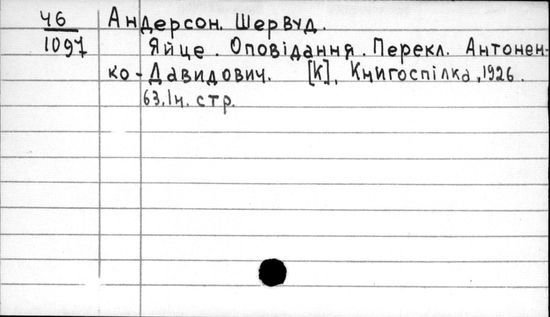 Ч6 Андерсон. Шервуд.
1097 Яйце. Оповідання. Перекл. Антонен-
ко-Давидович. [К], Книгоспілка, 1926.
63, Ін. стр.